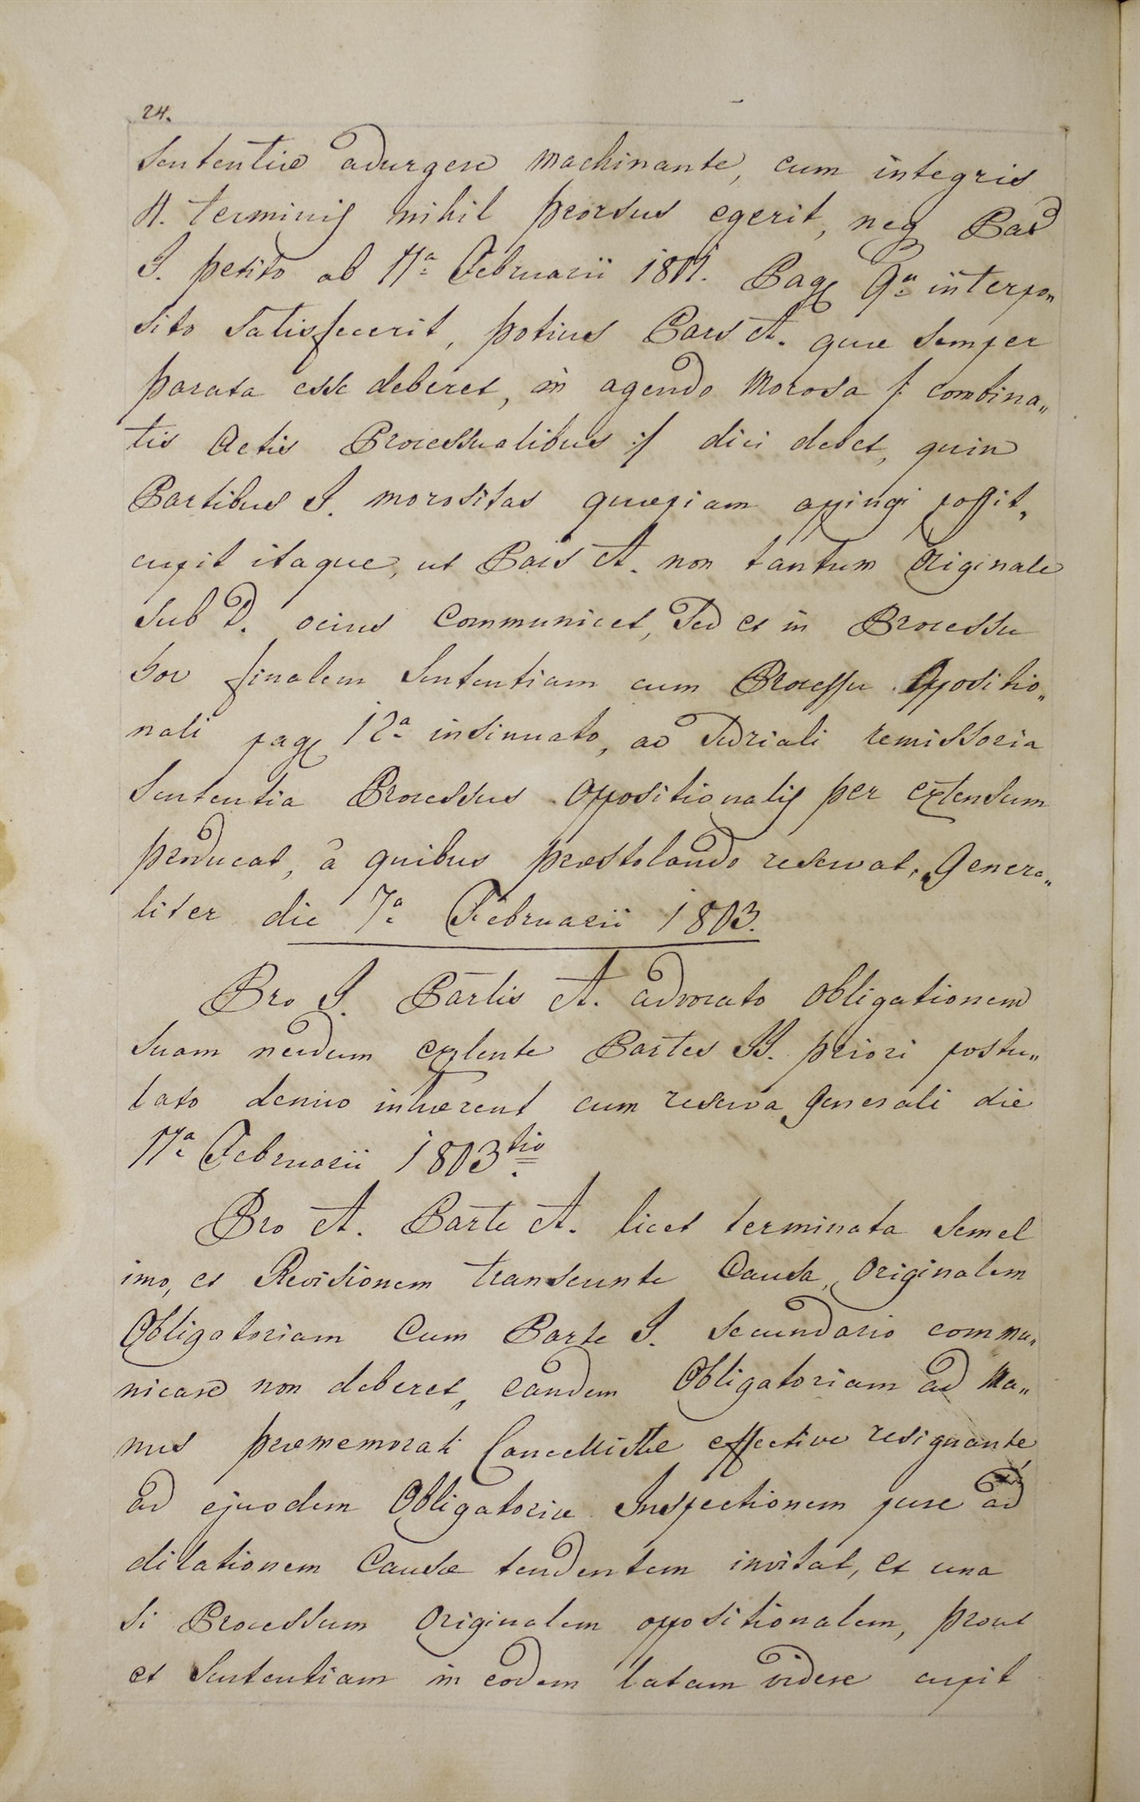 24.
Sententiæ adurgere machinante, cum integris
A. terminis nihil prorsus egerit, neq Par
I. petito ab 11a Februarii 1801. Pag 9a interpo„
sito satisfecerit, potius Pars A. quæ semper
parata esse deberet, in agendo morosa /: combina„
tis Actis Processualibus :/ dici debet, quin
Partibus I. morositas quæpiam appingi possit„
cupit itaque, ut Pars A. non tantum Originale
sub D. ocius communicet, sed et in Processu
hoc finalem Sententiam cum Processu Oppositio„
nali pag 12a insinuato, ac Sedriali remissoria
Sententia Processus Oppositionalis per extensum
producat, à quibus præstolando reservat. Genera„
liter die 7a Februarii 1803.
Pro I. Partis A. advocato obligationem
suam necdum explente Partes II. priori postu„
lato denuo inhærent cum reserva generali die
11a Februarii 1803tio.
Pro A. Parte A. licet terminata semel
imo, et Revisionem transeunte Causa, Originalem
Obligatoriam Cum Parte I. secundario commu„
nicare non deberet, eandem Obligatoriam ad Ma„
nus præmemorati Cancellistæ effective resignante
ad ejusdem Obligatoriæ Inspectionem pure ad
dilationem Causæ tendentem invitat, et una
si Processum Originalem oppositionalem, prout
et Sententiam in eodem latam videre cupit